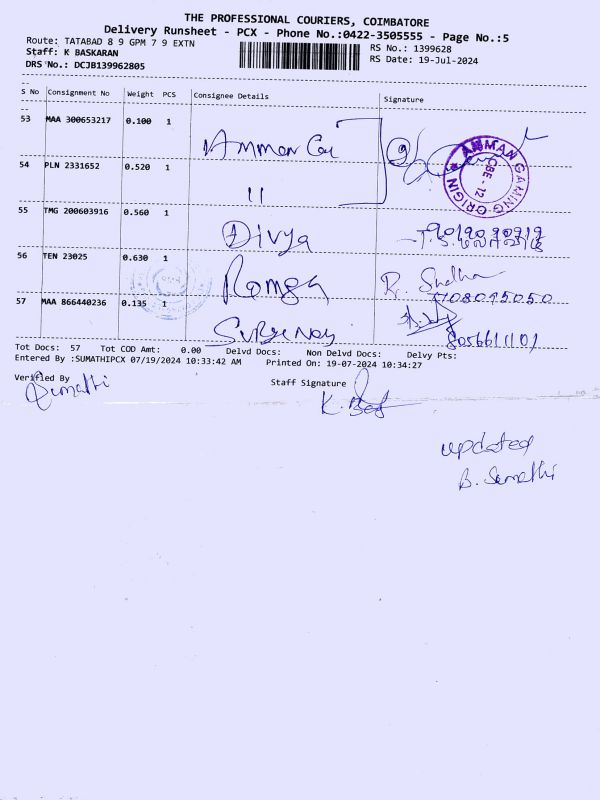 THE PROFESSIONAL COURIERS, COIMBATORE
Delivery Runsheet - PCX - Phone No.:0422-3505555 - Page No.:5
Route: TATABAD 8 9 GPM 7 9 EXTN
RS No.: 1399628
Staff: K BASKARAN
RS Date: 19-Jul-2024
DRS No.: DCJB139962805
S No Consignment No Weight PCS Consignee Details Signature
53 MAA 300653217 0.100 1 Amman
54 PLN 2331652 0.520 1 11
AMMAN GAMING ORIGIN
CBE - 12
55 TMG 200603916 0.560 1 Divya
56 TEN 23025 0.630 1
57 MAA 866440236 0.135 1
8056611101
Tot Docs: 57 Tot COD Amt: 0.00 Delvd Docs: Non Delvd Docs: Delvy Pts:
Entered By :SUMATHIPCX 07/19/2024 10:33:42 AM Printed On: 19-07-2024 10:34:27
Verified By Staff Signature
Sumathi
updated
B. Sumathi